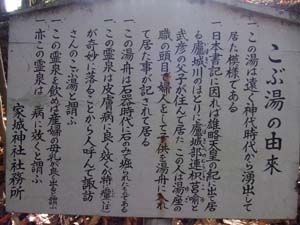 こぶ湯の由来
一この湯は遠く神代時代から湧出して
居た模様である
一日本書記に因れば雄略天皇の紀に出て居
る廬城川のほとりに廬城部連枳莒喩と
武彦の父子が住んで居た この人は湯座の
職の頭目で婦人をして子供を湯舟に入れ
て居た事が記されて居る
一この湯舟は石器時代にのみで掘られたものである
一この霊泉は皮膚病に良く效く
が奇妙に落ることから人呼んで諏訪
さんのこぶ湯と謂ふ
一この霊泉を飲めば産婦の母乳が良く出ると謂ひ
亦この霊泉は 病に效くと謂ふ
家城神社社務所